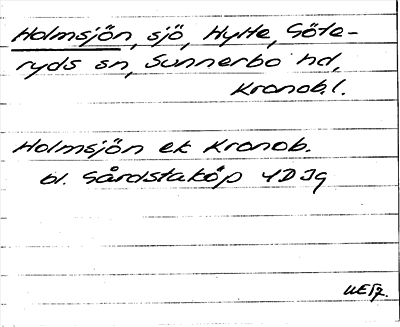 Holmsjön, sjö, Hylte, Göte-
ryds sn, Sunnerbo hd,
Kronob. l.
Holmsjön ek Kronob.
bl. Gårdstaköp 4D Jg